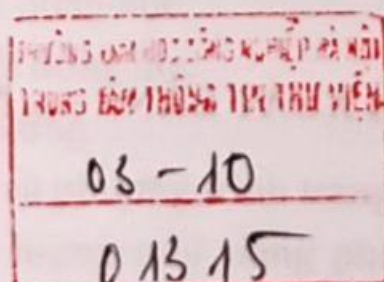 TRƯỜNG ĐẠI HỌC CÔNG NGHIỆP HÀ NỘI
TRUNG TÂM THÔNG TIN THƯ VIỆN
03-10
01315